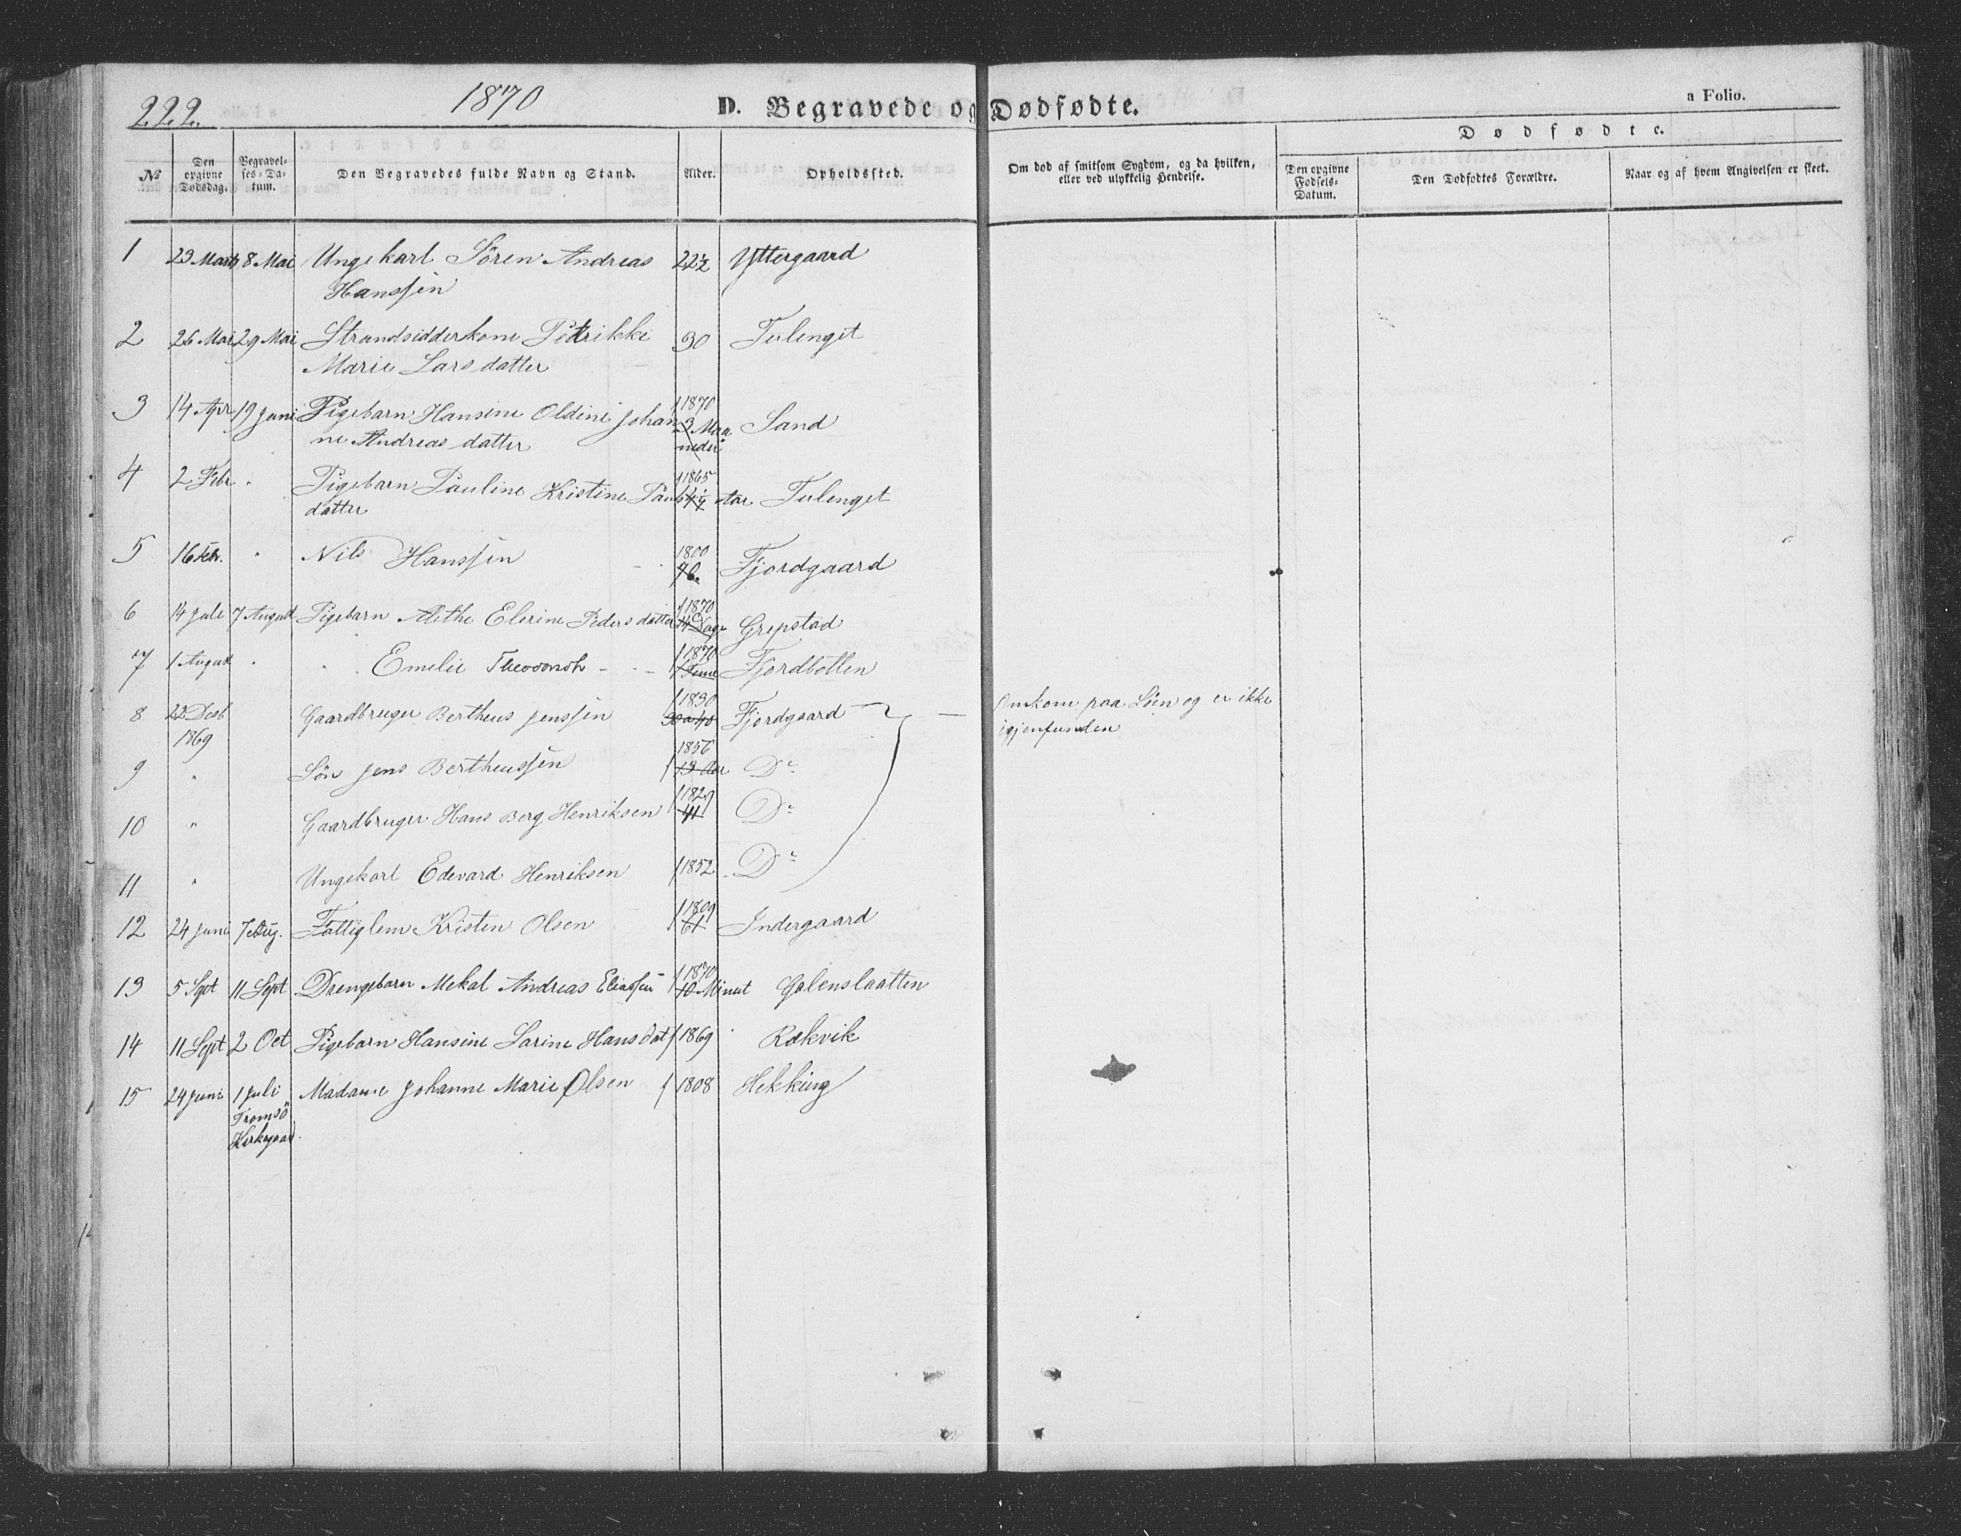 222. 1870 D. Begravede og Dødfødte. a Folio.
Dødfødte.
No Den opgivne Dødsdag. Begravelses-Datum. Den Begravedes fulde Navn og Stand. Alder. Opholdssted. Om død af smitsom Sygdom, og da hvilken, eller ved ulykkelig Hendelse. Den opgivne Fødsels-Datum. Den Dødfødtes Forældre. Naar og af hvem Angivelsen er skeet.
1 23 Marts 8 Mai Ungekarl Sören Andreas 22½ Yttergaard
Hanssen
2 26 Mai 29 Mai Strandsidderkone Petrikke 30 Tulenget
Marie Lars datter
3 14 Apr 19 Juni Pigebarn Hansine Oldine Johan f 1870 3 Maaneder Sand
ne Andreas datter
4 2 Febr " Pigebarn Pauline Kristine Pauls f 1865 Aar Tulenget
datter
5 16 Feb. " Nils Hanssen 1800 70. Fjordgaard
6 14 Juli 7 August Pigebarn Alethe Elerine Peders datter f 1870 14 Dage Grepstad
7 1 August " " Emelie - - f 1870 Fjordbotten
8 22 Desb 1869 Gaardbruger Bertheus Jenssen f 1830 30 a 40 Fjordgaard — Omkom paa Söen og er ikke
igjenfunden
9 " Sön Jens Bertheussen f 1856 13 Aar Do
10 " Gaardbruger Hans Berg Henriksen f 1829 41 Do
11 " Ungekarl Edevard Henriksen f 1852. Do
12 24 Juni 7 Aug. Fattiglem Kristen Olsen f 1809 61 Indergaard
13 5 Sept 11 Sept Drengebarn Mekal Andreas Eliassen f 1870 10 Minut Golenslaatten
14 11 Sept 2 Oct Pigebarn Hansine Sarine Hans dat f 1869 Rækvik
15 24 Juni 1 Juli Madame Johanne Marie Olsen f 1808 Hekking
Tromsö
Kirkegaard.